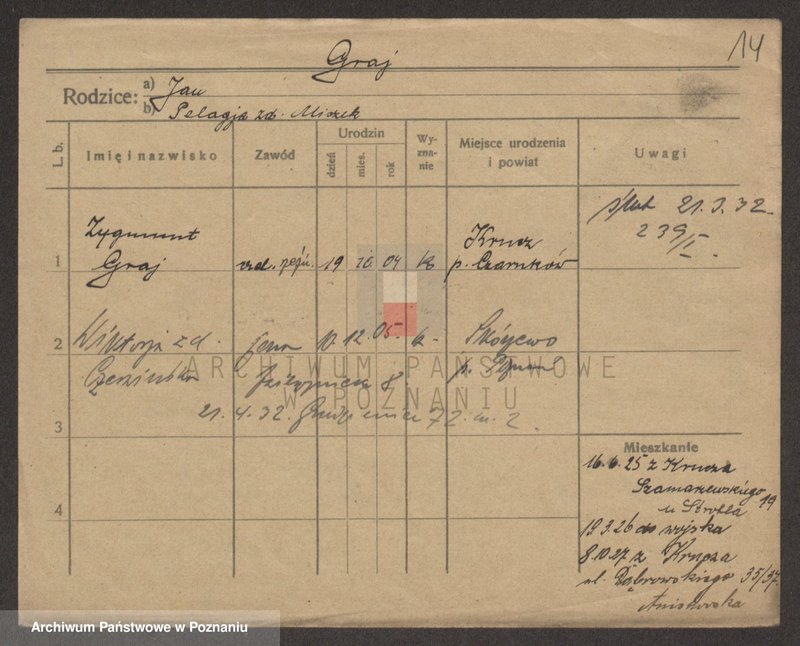 14
Graj
Rodzice: a) Jan
b) Pelagja zd. Miszek
L. b. Imię i nazwisko Zawód Urodzin dzień mies. rok Wy-zna-nie Miejsce urodzenia i powiat Uwagi
ślub 21.3.32.
239/I.
Zygmunt Krucz
1 Graj czel. 19 10 04 k p. Czarnków
2 Wiktorja zd. żona 10 12 05 k Skórzewo
p. Poznań
ARCHIWUM PAŃSTWOWE
W POZNANIU
21.4.32. 72 m. 2.
3
Mieszkanie
16.6.25 z Krucza
Szamarzewskiego 19
u Strobla
4
19.3.26 do wojska
8.10.27 z Krucza
ul. Dąbrowskiego 35/37.
Archiwum Państwowe w Poznaniu